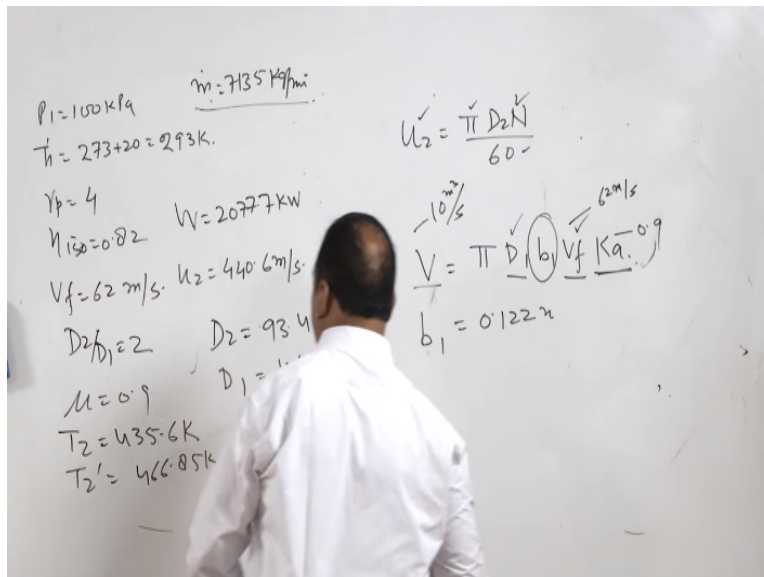 P1=100kPa
ṁ=7135 Kg/mi
T1= 273+20=293K.
rp= 4
ηiso=0.82
W=20777KW
Vf=62 m/s.
u2=440.6m/s.
D2/D1=2
D2=93.4
D1=
μ=0.9
T2=435.6K
T2'= 466.85K
u2= π D2N
60
10 m3/s
62m/s
V = π D1 b1 Vf Ka. 0.9
b1 = 0.122m